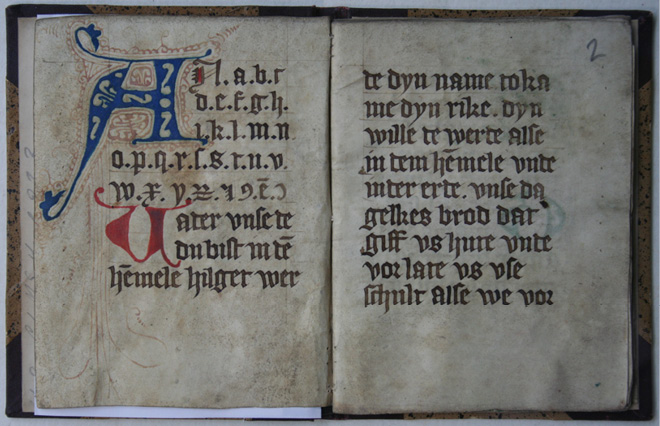 A.a.b.c
d.e.f.g.h.
i.k.l.m.n
o.p.q.r.ſ.s.t.u.v.
w.x.y.z.⁊.ꝯ.ē.ɔ
Vater vnse te
du bist in tē
hēmele hilget wer
2
te dyn name toka
me dyn rike. dyn
wille te werte alse
in tem hēmele vnte
in ter erte. vnse da
gelkes brod dat
giff vs hute vnte
vor late vs vse
schult alse we vor